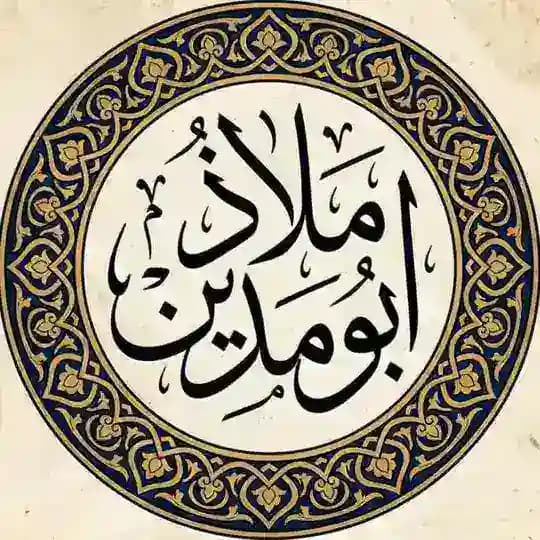 ملاذ
ابو مدين